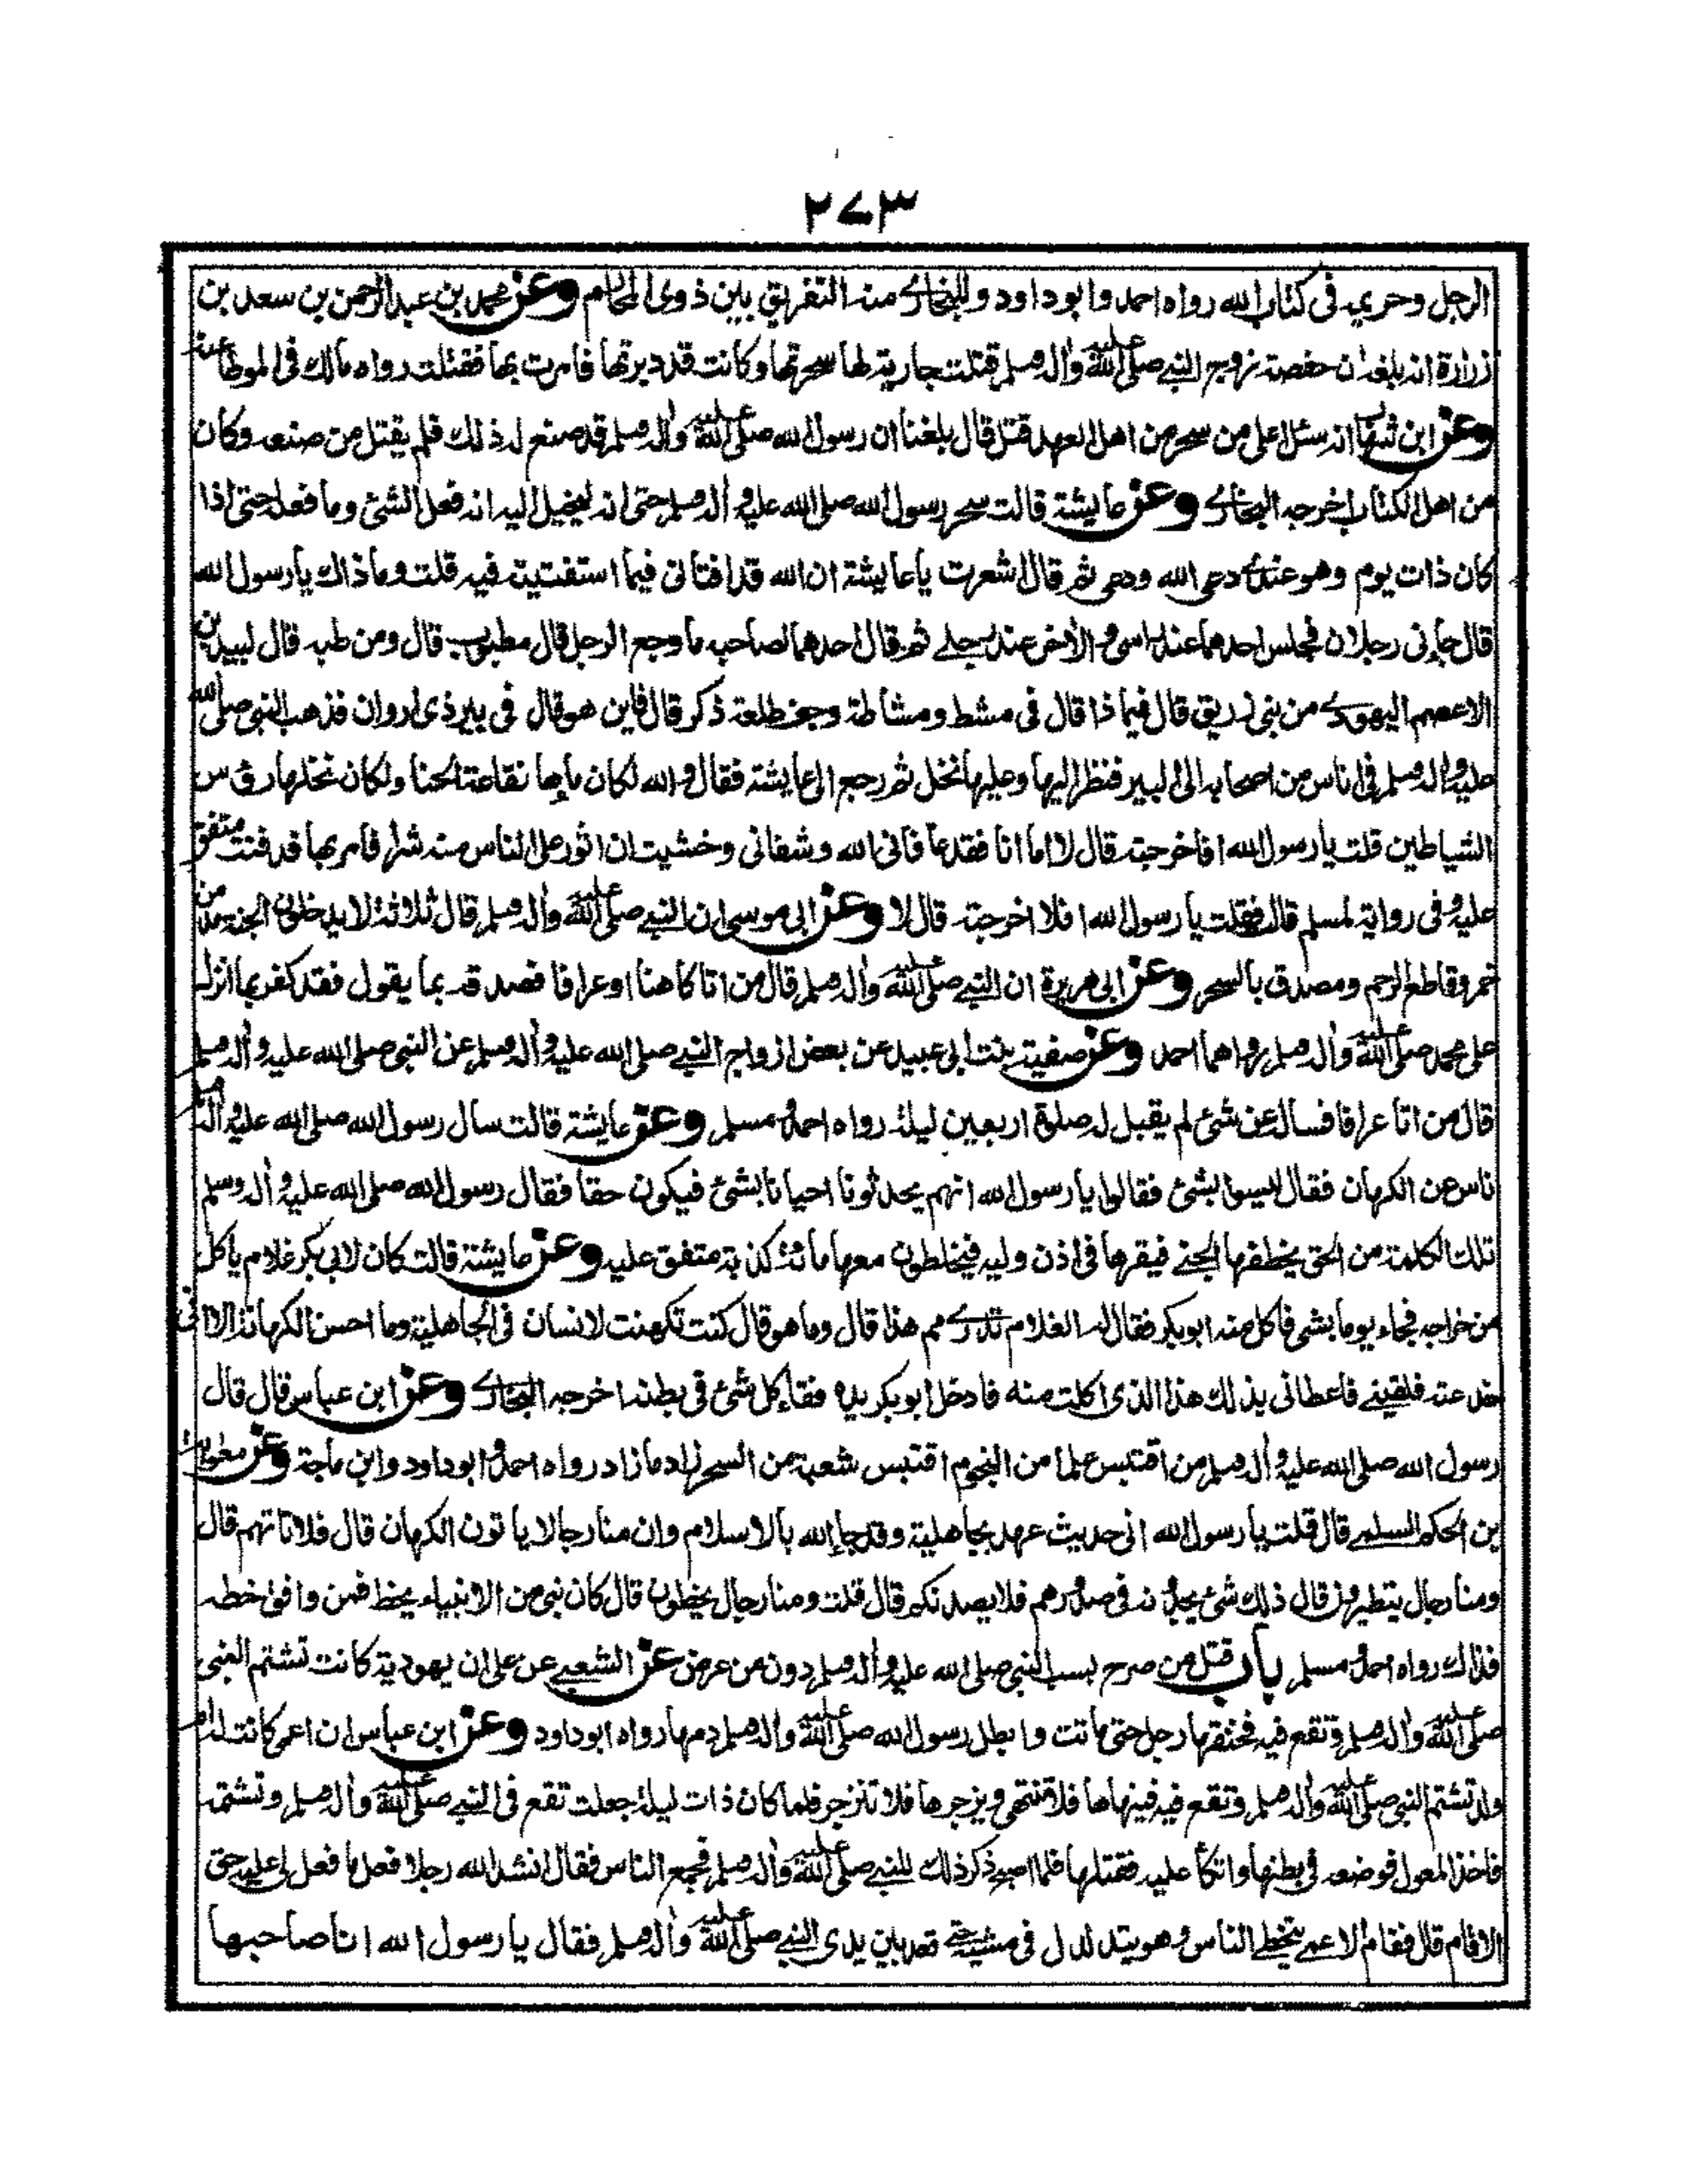 ٢٧٣
الرجل وحريمه فى كتاب الله رواه احمد وابو داود وللبخارى منه التفريق بين ذوى المحارم وعن محمد بن عبد الرحمن بن سعد بن
زرارة انه بلغه ان حفصة زوج النبي صلى الله عليه واله وسلم قتلت جارية لها سحرتها وكانت قد دبرتها فامرت بها فقتلت رواه مالك فى الموطا عنه
وعن ابن شهاب انه سئل اعلى من سحر من اهل العهد قتل قال بلغنا ان رسول الله صلى الله عليه واله وسلم قد صنع له ذلك فلم يقتل من صنعه وكان
من اهل الكتاب اخرجه البخارى وعن عايشة قالت سحر رسول الله صلى الله عليه واله وسلم حتى انه ليخيل اليه انه فعل الشئ وما فعله حتى اذا
كان ذات يوم وهو عندى دعى الله ودعى ثم قال اشعرت ياعايشة ان الله قد افتانى فيما استفتيته فيه قلت وماذاك يارسول الله
قال جاءنى رجلان فجلس احدهما عند راسى والاخر عند رجلے ثم قال احدهما لصاحبه ما وجع الرجل قال مطبوب قال ومن طبه قال لبيد بن
الاعصم اليهودى من بنى زريق قال فيما ذا قال فى مشط ومشاطة وجف طلعة ذكر قال فاين هو قال فى بير ذى اروان فذهب النبى صلى الله
عليه واله وسلم فى اناس من اصحابه الى البير فنظر اليها وعليها نخل ثم رجع الى عايشة فقال والله لكان ماءها نقاعة الحنا ولكان نخلها رؤس
الشياطين قلت يارسول الله افاخرجته قال لا اما انا فقد عافانى الله وشفانى وخشيت ان اثور على الناس منه شرا فامر بها فدفنت متفق
عليه وفى رواية لمسلم قالت فقلت يارسول الله افلا اخرجته قال لا وعن ابى موسى ان النبي صلى الله عليه واله وسلم قال ثلاثة لا يدخلون الجنة مدمن
خمر وقاطع الرحم ومصدق بالسحر وعن ابى هريرة ان النبي صلى الله عليه واله وسلم قال من اتا كاهنا او عرافا فصدقه بما يقول فقد كفر بما انزل
على محمد صلى الله عليه واله وسلم رواهما احمد وعن صفية بنت ابى عبيد عن بعض ازواج النبي صلى الله عليه واله وسلم عن النبى صلى الله عليه واله وسلم
قال من اتا عرافا فساله عن شئ لم يقبل له صلوة اربعين ليلة رواه احمد ومسلم وعن عايشة قالت سال رسول الله صلى الله عليه واله وسلم
ناس عن الكهان فقال ليسوا بشئ فقالوا يارسول الله انهم يحدثونا احيانا بشئ فيكون حقا فقال رسول الله صلى الله عليه واله وسلم
تلك الكلمة من الحق يخطفها الجنے فيقرها فى اذن وليه فيخلطون معها مائة كذبة متفق عليه وعن عايشة قالت كان لابى بكر غلام ياكل
من خراجه فجاء يوما بشى فاكل منه ابو بكر فقال له الغلام تدرى مم هذا قال وما هو قال كنت تكهنت لانسان فى الجاهلية وما احسن الكهانة الا انى
خدعته فلقينے فاعطانى بذلك هذا الذى اكلت منه فادخل ابو بكر يده فقاء كل شئ فى بطنه اخرجه البخارى وعن ابن عباس قال قال
رسول الله صلى الله عليه واله وسلم من اقتبس علما من النجوم اقتبس شعبة من السحر زاد مازاد رواه احمد وابو داود وابن ماجة وعن معوية
بن الحكم السلمى قال قلت يارسول الله انى حديث عهد بجاهلية وقد جاء الله بالاسلام وان منا رجالا ياتون الكهان قال فلا تاتهم قال
ومنا رجال يتطيرون قال ذلك شئ يجدونه فى صدورهم فلا يصدنكم قال قلت ومنا رجال يخطون قال كان نبى من الانبياء يخط فمن وافق خطه
فذاك رواه احمد ومسلم باب قتل من صرح بسب النبى صلى الله عليه واله وسلم دون من عرض عن الشعبے عن على ان يهودية كانت تشتم النبى
صلى الله عليه واله وسلم وتقع فيه فخنقها رجل حتى ماتت وابطل رسول الله صلى الله عليه واله وسلم دمها رواه ابو داود وعن ابن عباس ان اعمى كانت له ام
ولد تشتم النبى صلى الله عليه واله وسلم وتقع فيه فينهاها فلا تنتهى ويزجرها فلا تنزجر فلما كان ذات ليلة جعلت تقع فى النبي صلى الله عليه واله وسلم وتشتمه
فاخذ المعول فوضعه فى بطنها واتكأ عليه فقتلها فلما اصبح ذكر ذلك للنبي صلى الله عليه واله وسلم فجمع الناس فقال انشد الله رجلا فعل ما فعل لى عليه حق
الا قام قال فقام الاعمى يتخطى الناس وهو يتدلدل فى مشيته حتى قعد بين يدى النبي صلى الله عليه واله وسلم فقال يا رسول الله انا صاحبها